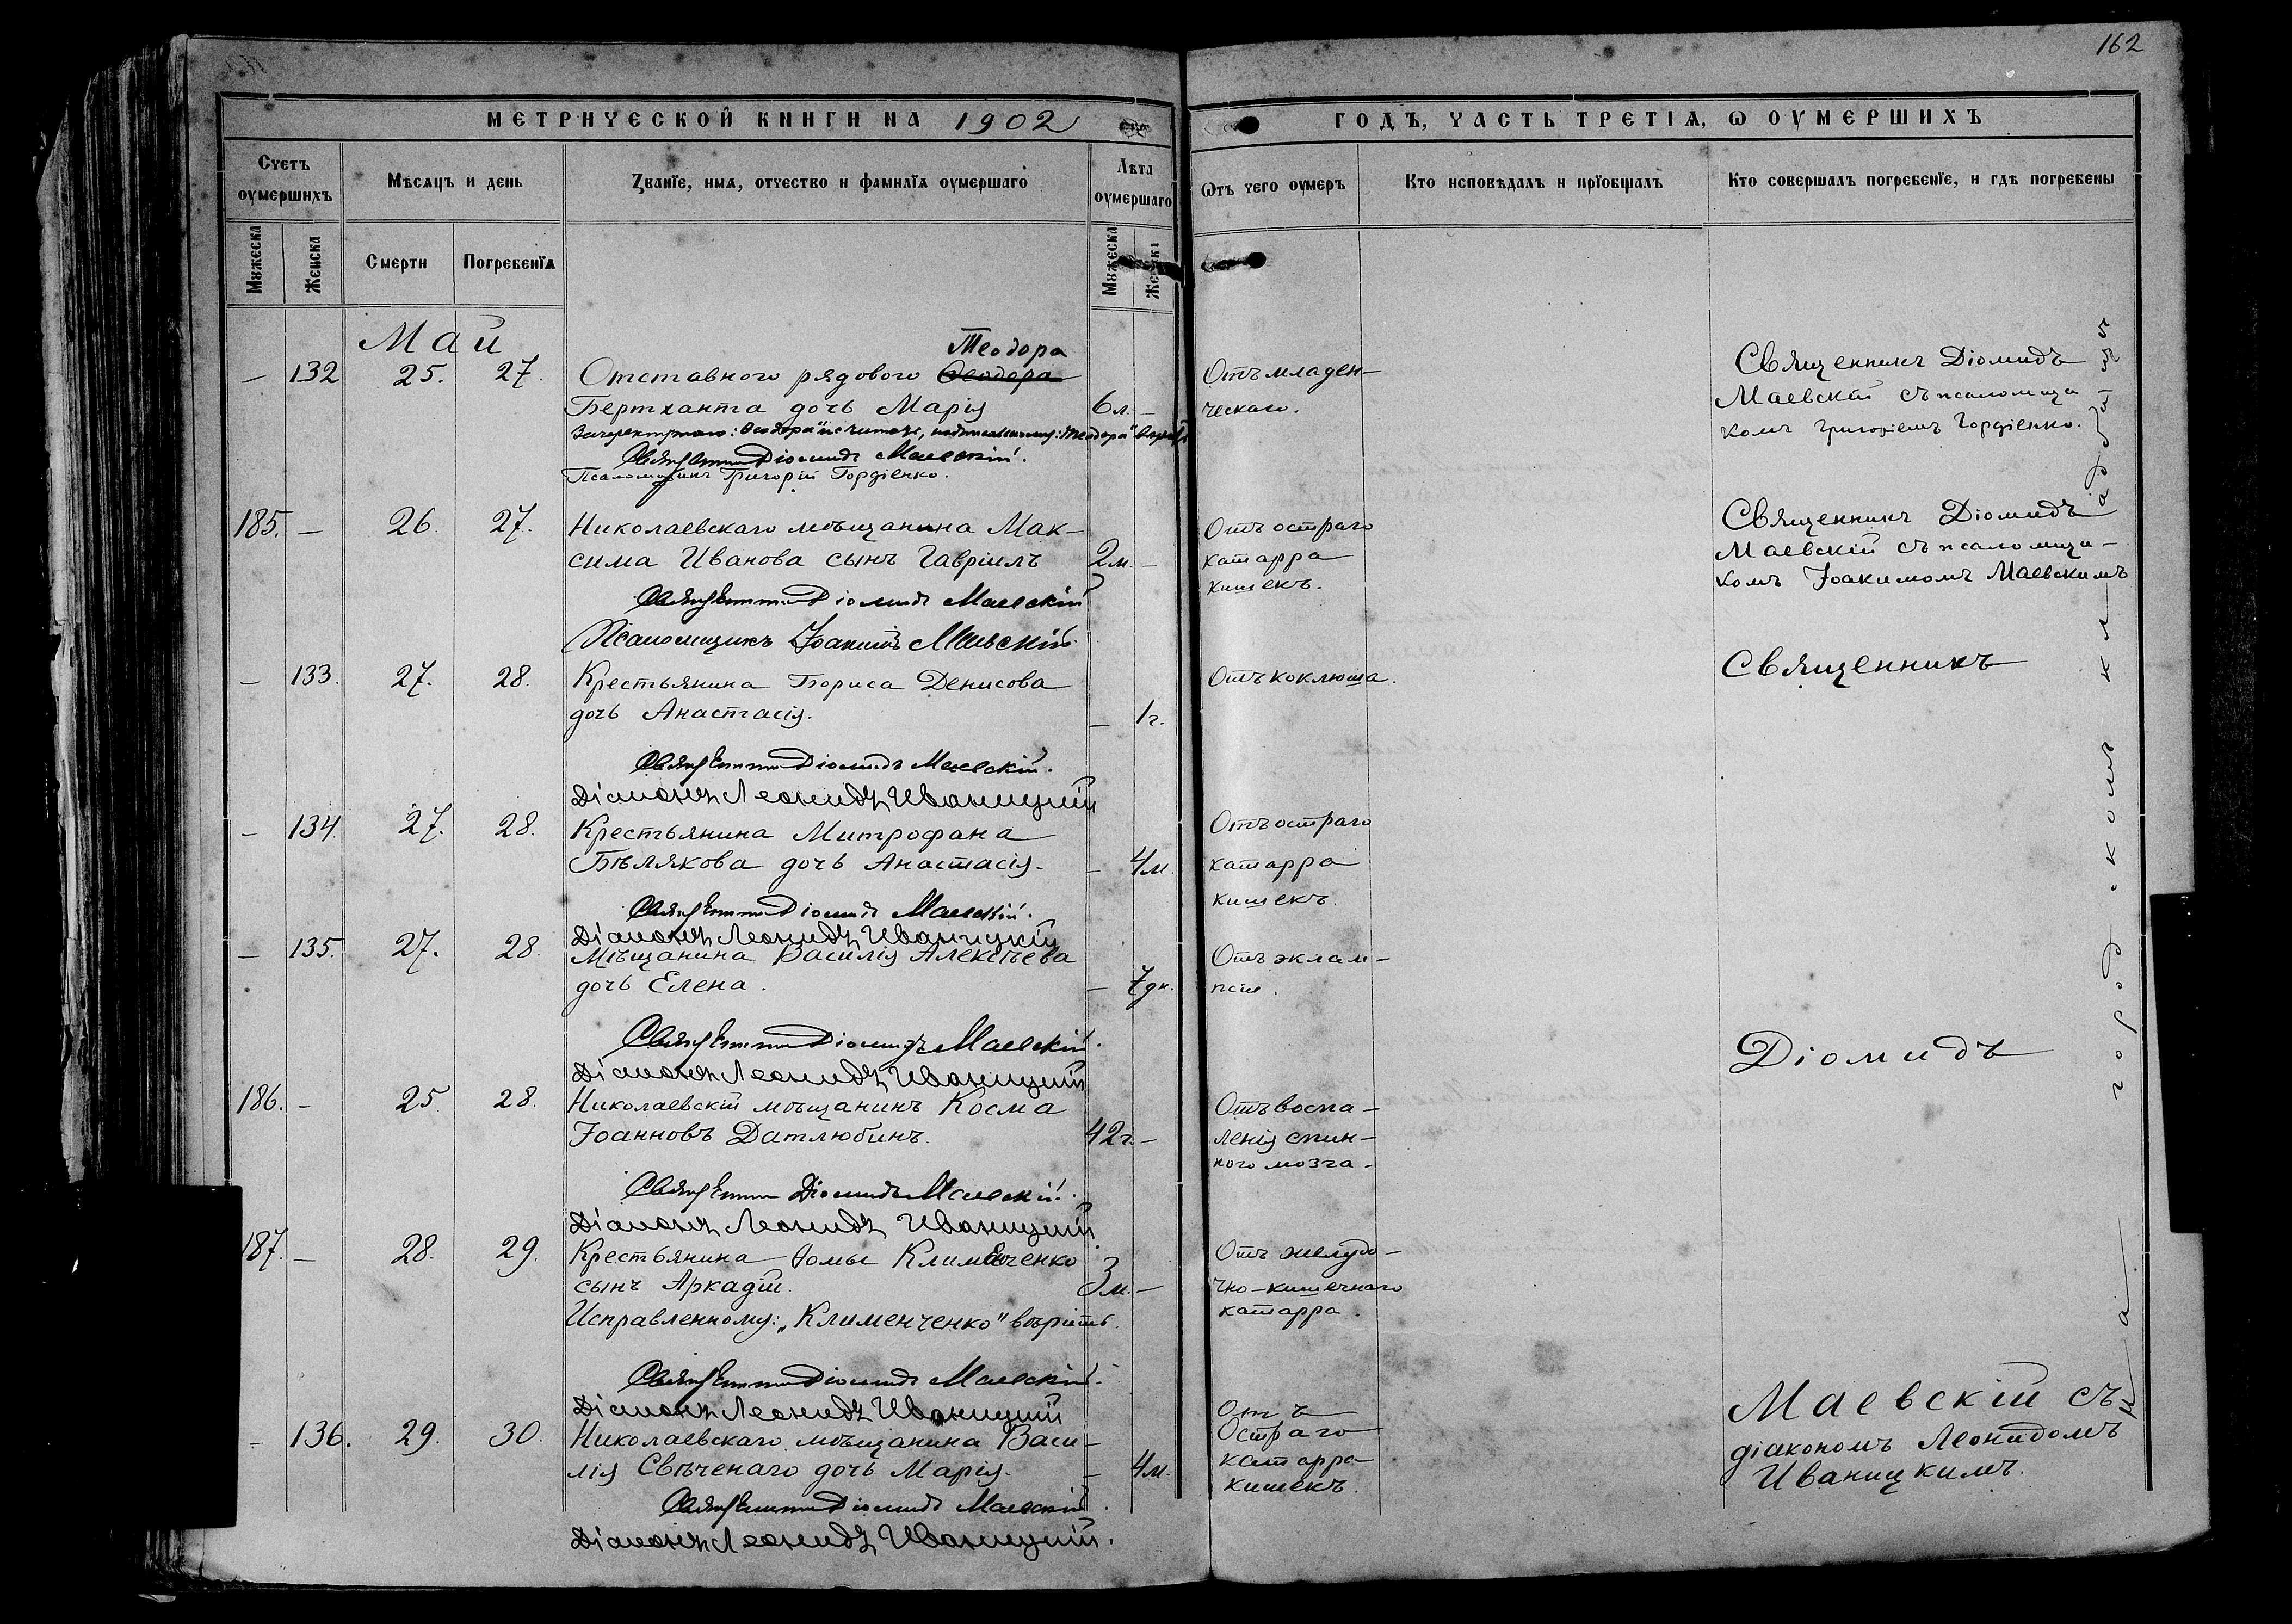 162
МЕТРИЧЕСКОЙ КНИГИ НА 1902
ГОДЪ, ЧАСТЬ ТРЕТІѦ, Ѡ ОУМЕРШИХЪ
Счетъ оумершихъ
Мѣсѧцъ и день
Званїе, имѧ, отчество и фамилїѧ оумершагѡ
Лѣта оумершаго
Ѿтъ чего оумеръ
Кто исповѣдалъ и прїобщалъ
Кто совершалъ погребенїе, и гдѣ погребены
Мужеска
Женска
Смерти
Погребенїѧ
Мужеска
Женска
Май
Теодора
— 132 25. 27. Отставного рядового Ѳеодора
Бертханта дочь Марія 6 л. —
Зачеркнутого: Ѳеодора" не читать, надписанному: "Теодора" вѣрить
Священникъ Діомидъ Маевскій.
Псаломщикъ Григорій Гордіенко.
Отъ младен-
ческаго.
Священникъ Діомидъ
Маевскій съ псаломщи-
комъ Григоріемъ Гордіенко.
185. — 26. 27. Николаевскаго мѣщанина Мак-
сима Иванова сынъ Гавріилъ 2 м. —
Священникъ Діомидъ Маевскій
Псаломщикъ Іоакимъ Маевскій.
Отъ остраго
катарра
кишекъ.
Священникъ Діомидъ
Маевскій съ псаломщи-
комъ Іоакимомъ Маевскимъ
— 133. 27. 28. Крестьянина Бориса Денисова
дочь Анастасія. — 1 г.
Священникъ Діомидъ Маевскій.
Діаконъ Леонидъ Иваницкій
Отъ коклюша.
Священникъ
— 134. 27. 28. Крестьянина Митрофана
Бѣлякова дочь Анастасія. — 4 м.
Священникъ Діомидъ Маевскій.
Діаконъ Леонидъ Иваницкій
Отъ остраго
катарра
кишекъ.
— 135. 27. 28. Мѣщанина Василія Алексѣева
дочь Елена. — 7 дн.
Священникъ Діомидъ Маевскій.
Діаконъ Леонидъ Иваницкій
Отъ эклам-
псіи.
Діомидъ
186. — 25. 28. Николаевскій мѣщанинъ Косма
Іоанновъ Датлюбинъ. 42 г. —
Священникъ Діомидъ Маевскій.
Діаконъ Леонидъ Иваницкій.
Отъ воспа-
ленія спин-
ного мозга.
187. — 28. 29. Крестьянина Ѳомы Клименченко
сынъ Аркадій. 3 м. —
Исправленному: "Клименченко" вѣрить.
Священникъ Діомидъ Маевскій.
Діаконъ Леонидъ Иваницкій
Отъ желудо-
чно-кишечнаго
катарра.
— 136. 29. 30. Николаевскаго мѣщанина Васи-
лія Свѣченаго дочь Марія. — 4 м.
Священникъ Діомидъ Маевскій.
Діаконъ Леонидъ Иваницкій.
Отъ
Остраго
катарра
кишекъ.
Маевскій съ
діакономъ Леонидомъ
Иваницкимъ.
на городскомъ кладбищѣ